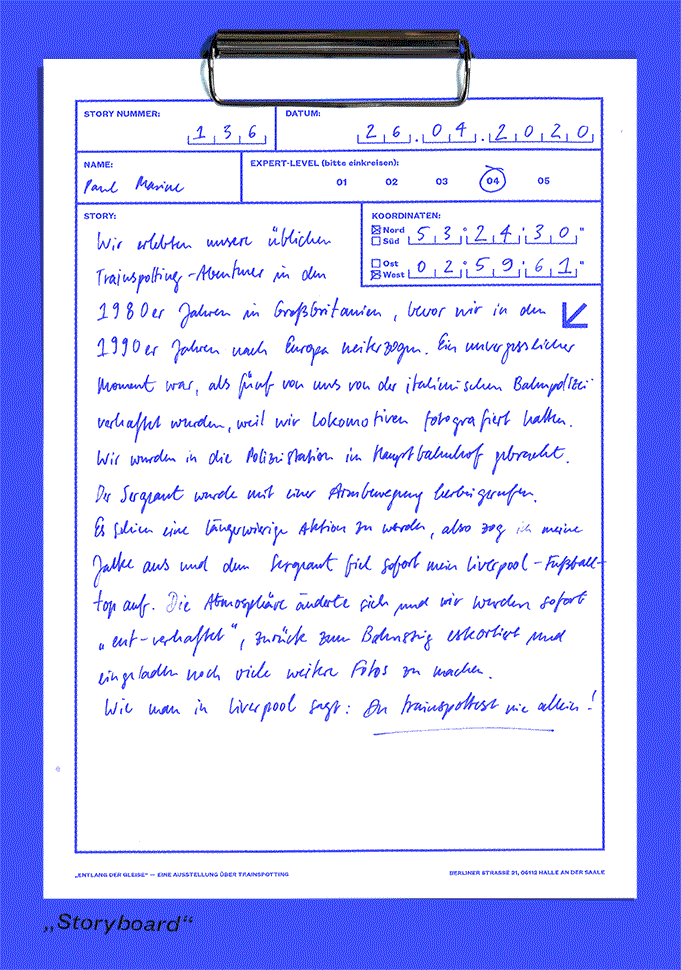 STORY NUMMER:
1 3 6
DATUM:
2 6 . 0 4 . 2 0 2 0
NAME:
Paul Marine
EXPERT-LEVEL (bitte einkreisen):
01 02 03 04 05
STORY:
KOORDINATEN:
Nord
Süd
5 3 ° 2 4 ' 3 0 "
Ost
West
0 2 ° 5 9 ' 6 1 "
Wir erlebten unsere üblichen
Trainspotting-Abenteuer in den
1980er Jahren in Großbritanien, bevor wir in den
1990er Jahren nach Europa weiterzogen. Ein unvergesslicher
Moment war, als fünf von uns von der italienischen Bahnpolizei
verhaftet wurden, weil wir Lokomotiven fotografiert hatten.
Wir wurden in die Polizeistation im Hauptbahnhof gebracht.
Der Sergeant wurde mit einer Armbewegung herbeigerufen.
Es schien eine längerwierige Aktion zu werden, also zog ich meine
Jacke aus und dem Sergeant fiel sofort mein Liverpool-Fußball-
top auf. Die Atmosphäre änderte sich und wir wurden sofort
„ent-verhaftet“, zurück zum Bahnsteig eskortiert und
eingeladen noch viele weitere Fotos zu machen.
Wie man in Liverpool sagt: Du trainspottest nie allein!
„ENTLANG DER GLEISE“ — EINE AUSSTELLUNG ÜBER TRAINSPOTTING
BERLINER STRASSE 21, 06112 HALLE AN DER SAALE
„Storyboard“